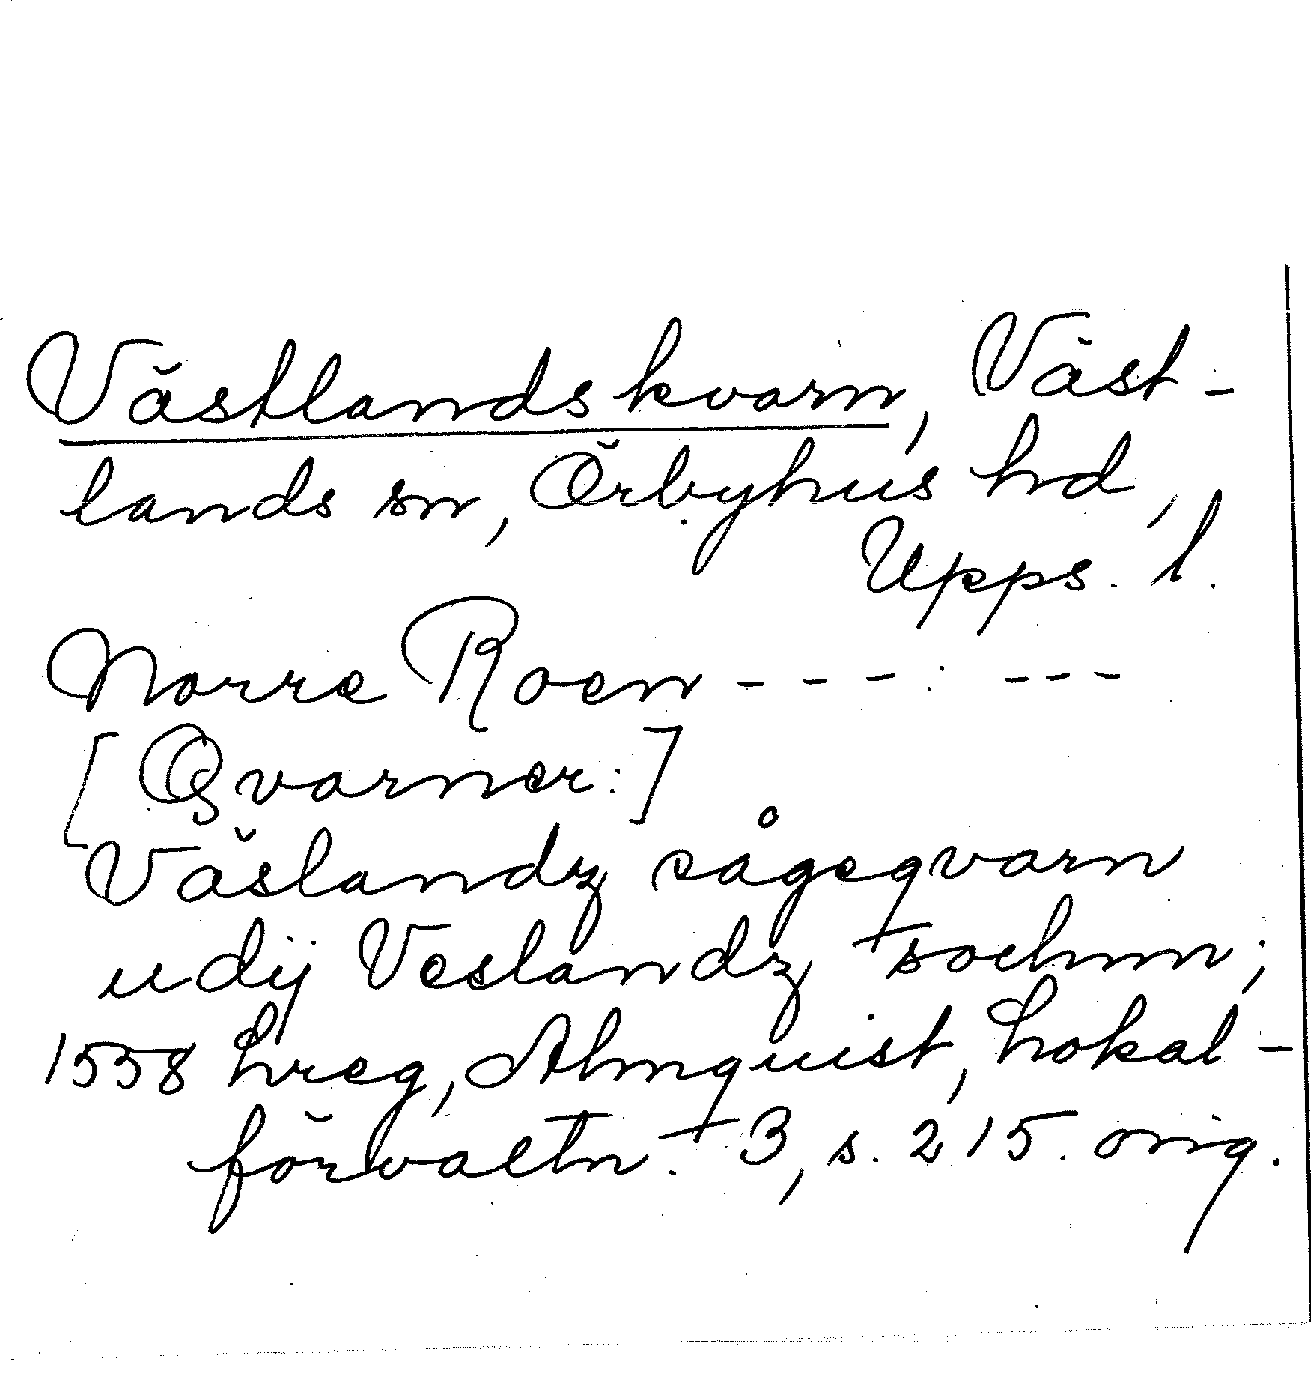 Västlandskvarn, Väst-
lands sn, Örbyhus hd,
Upps. l.
Norre Roen --- ---
[Qvarner:]
Väslandz sågeqvarn
udij Veslandz sochnn;
1558 Lreg, Almquist, Lokal-
förvaltn. 3, s. 215. orig.